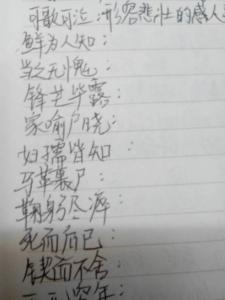 可歌可泣：形容悲壮的感人
鲜为人知：
当之无愧：
锋芒毕露：
家喻户晓：
妇孺皆知：
马革裹尸：
鞠躬尽瘁：
死而后已：
锲而不舍：